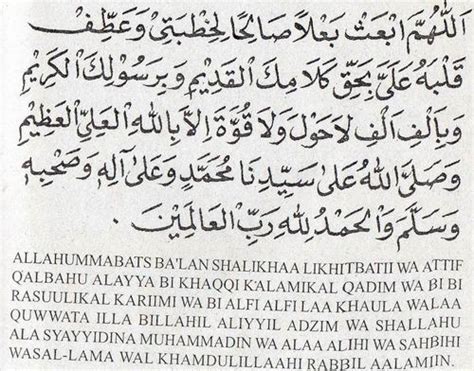 اَللّٰهُمَّ ابْعَثْ بَعْلًا صَالِحًا لِخِطْبَتِيْ وَعَطِّفْ
قَلْبَهُ عَلَيَّ بِحَقِّ كَلَامِكَ الْقَدِيْمِ وَبِرَسُوْلِكَ الْكَرِيْمِ
وَبِأَلْفِ أَلْفِ لَاحَوْلَ وَلَا قُوَّةَ اِلَّا بِاللهِ الْعَلِيِّ الْعَظِيْمِ
وَصَلَّى اللهُ عَلٰى سَيِّدِنَا مُحَمَّدٍ وَعَلٰى آلِهِ وَصَحْبِهِ
وَسَلَّمَ وَالْحَمْدُ لِلّٰهِ رَبِّ الْعَالَمِيْنَ .
ALLAHUMMABATS BA'LAN SHALIKHAA LIKHITBATII WA ATTIF
QALBAHU ALAYYA BI KHAQQI KALAMIKAL QADIM WA BI BI
RASUULIKAL KARIIMI WA BI ALFI ALFI LAA KHAULA WALAA
QUWWATA ILLA BILLAHIL ALIYYIL ADZIM WA SHALLAHU
ALA SYAYYIDINA MUHAMMADIN WA ALAA ALIHI WA SAHBIHI
WASAL-LAMA WAL KHAMDULILLAAHI RABBIL AALAMIIN.